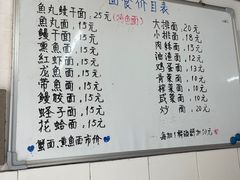 面食价目表
鱼丸鳗干面：25元
鱼丸面，15元
鳗干面，15元
熏鱼面，15元
红虾面，15元
龙鱼面，15元
带鱼面，15元
鳗胶面，15元
蛏子面，15元
花蛤面，15元
蟹面、黄鱼面市价
大排面，20元
小排面，18元
肉丝面，13元
油渣面，12元
鸡蛋面，10元
青菜面，10元
榨菜面，10元
咸菜面，10元
炒 面，20元